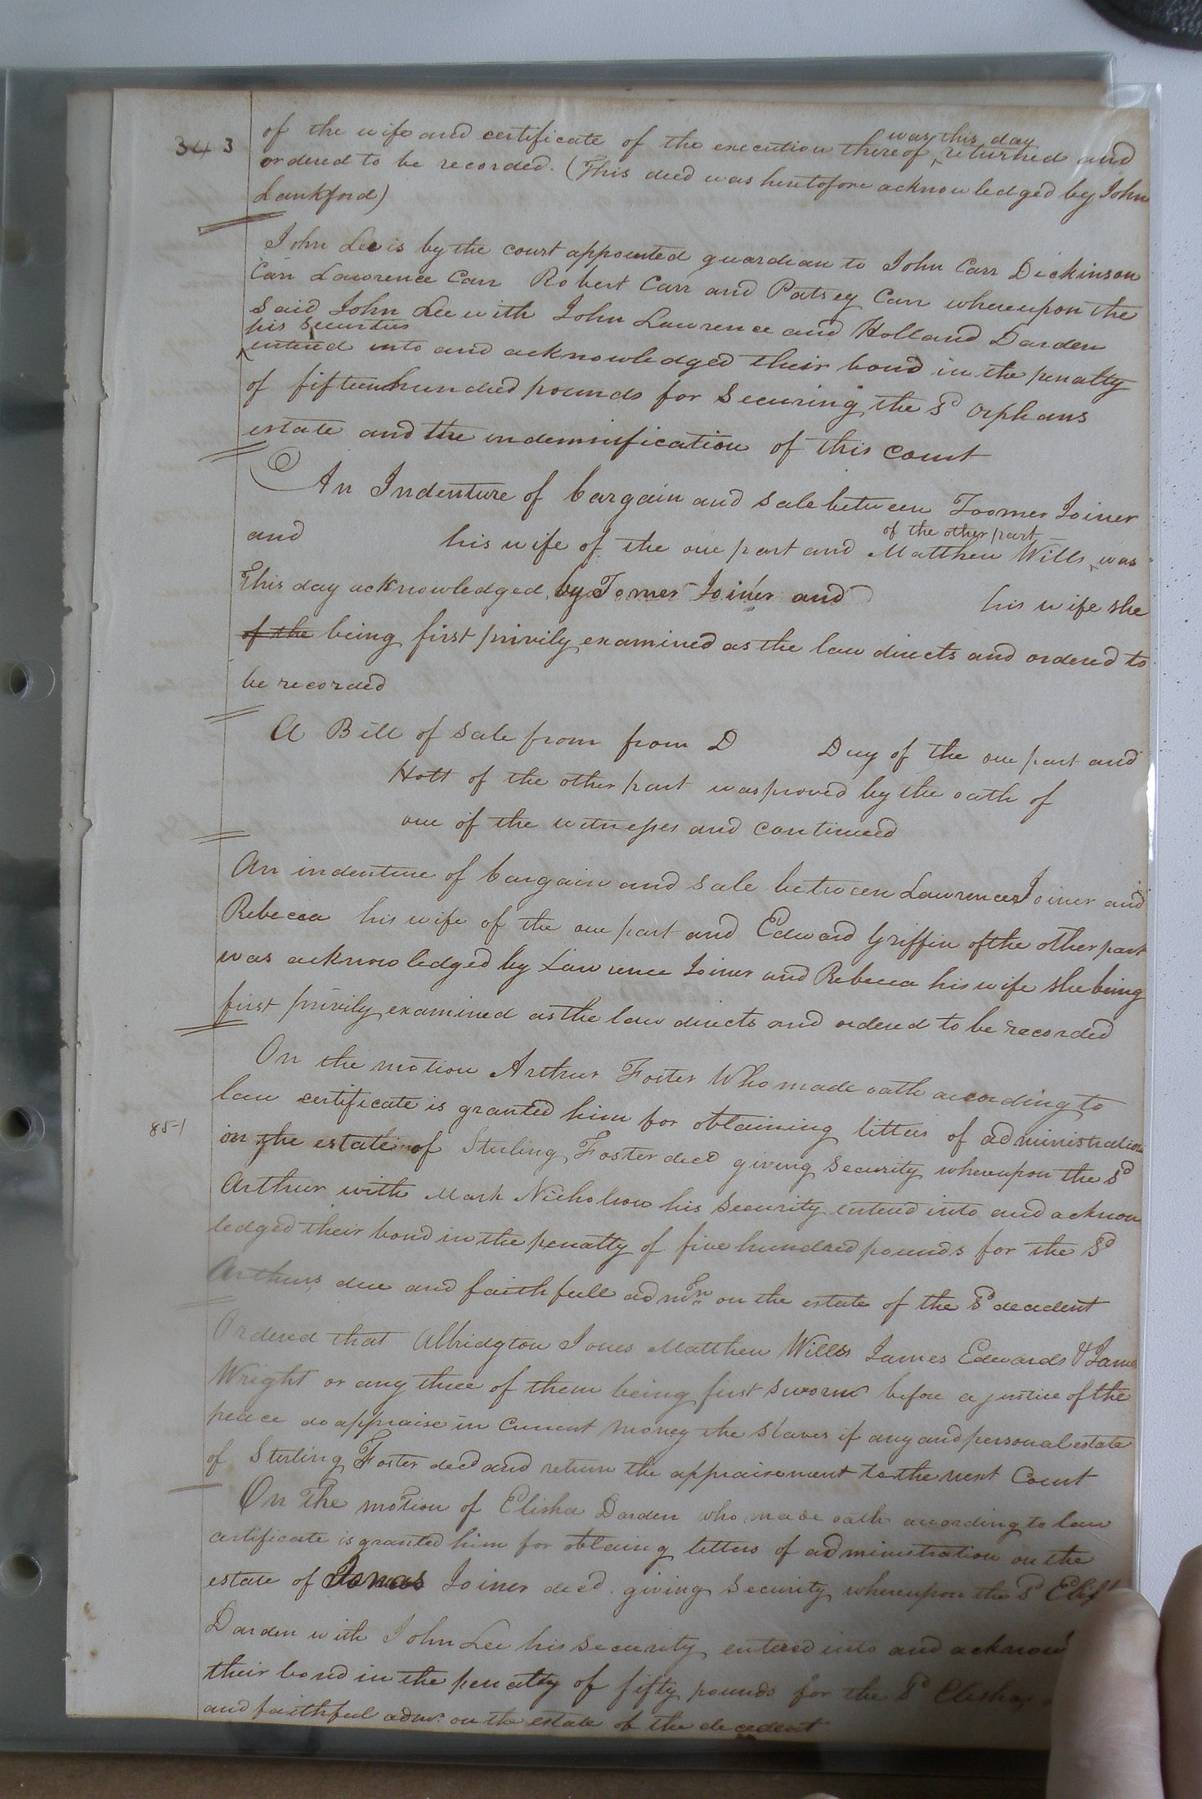 343
of the wife and certificate of the execution thereof was this day returned and
ordered to be recorded. (This deed was heretofore acknowledged by John
Lankford)
John Lee is by the court appointed guardian to John Carr Dickinson
Carr Lawrence Carr Robert Carr and Patsey Carr whereupon the
said John Lee with John Lawrence and Holland Darden
his securities
entered into and acknowledged their bond in the penalty
of fifteen hundred pounds for securing the sd orphans
estate and the indemnification of this court
An Indenture of bargain and sale between Toomer Joiner
of the other part
and his wife of the one part and Matthew Wills was
this day acknowledged by Tomer Joiner and his wife she
of the being first privily examined as the law directs and ordered to
be recorded
A Bill of sale from from D Duy of the one part and
Hott of the other part was proved by the oath of
one of the witnesses and continued
An indenture of bargain and sale between Lawrence Joiner and
Rebecca his wife of the one part and Edward Griffin of the other part
was acknowledged by Lawrence Joiner and Rebecca his wife she being
first privily examined as the law directs and ordered to be recorded
On the motion Arthur Foster Who made oath according to
law certificate is granted him for obtaining letters of administration
851
on the estate of Sterling Foster decd giving security whereupon the sd
Arthur with Mark Nicholson his security entered into and acknow
ledged their bond in the penalty of five hundred pounds for the sd
Arthurs due and faithfull admn on the estate of the sd decedent
Ordered that Albridgton Jones Matthew Wills James Edwards & James
Wright or any three of them being first sworn before a justice of the
peace do appraise in current money the slaves if any and personal estate
of Sterling Foster decd and return the appraisement to the next Court
On the motion of Elisha Darden who made oath according to law
certificate is granted him for obtaing letters of administration on the
estate of Jonas Joiner decd. giving security whereupon the sd
Darden with John Lee his security entered into and acknow
their bond in the penalty of fifty pounds for the sd Elishas
and faithful adm. on the estate of the decedent